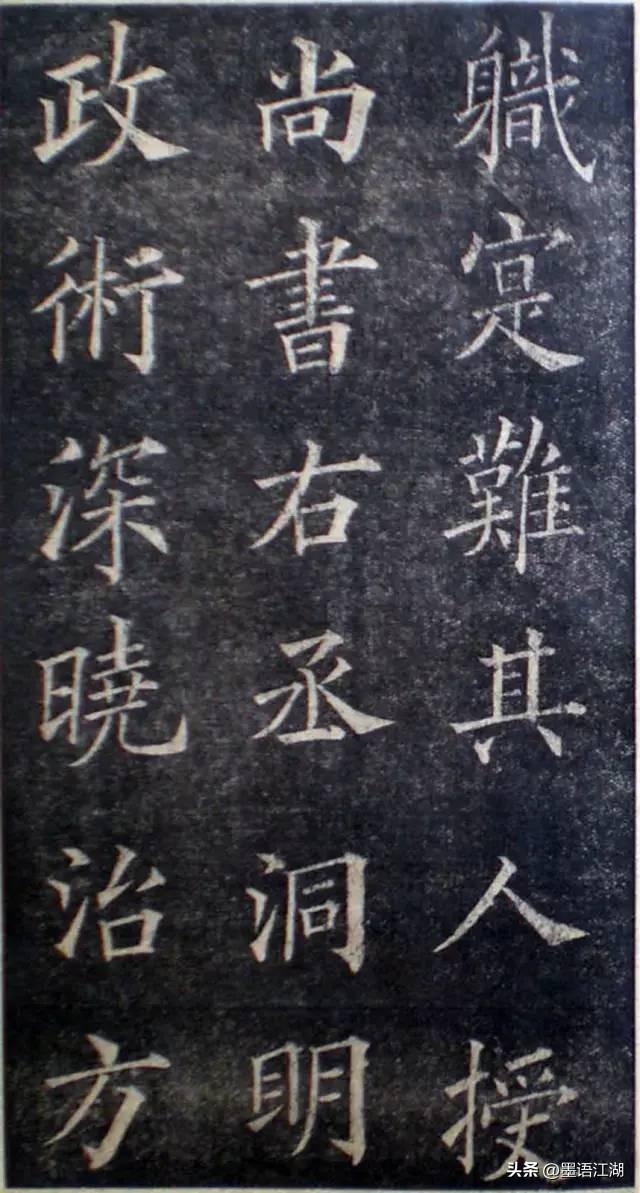 軄寔難其人授
尚書右丞洞明
政術深曉治方
头条 @墨语江湖